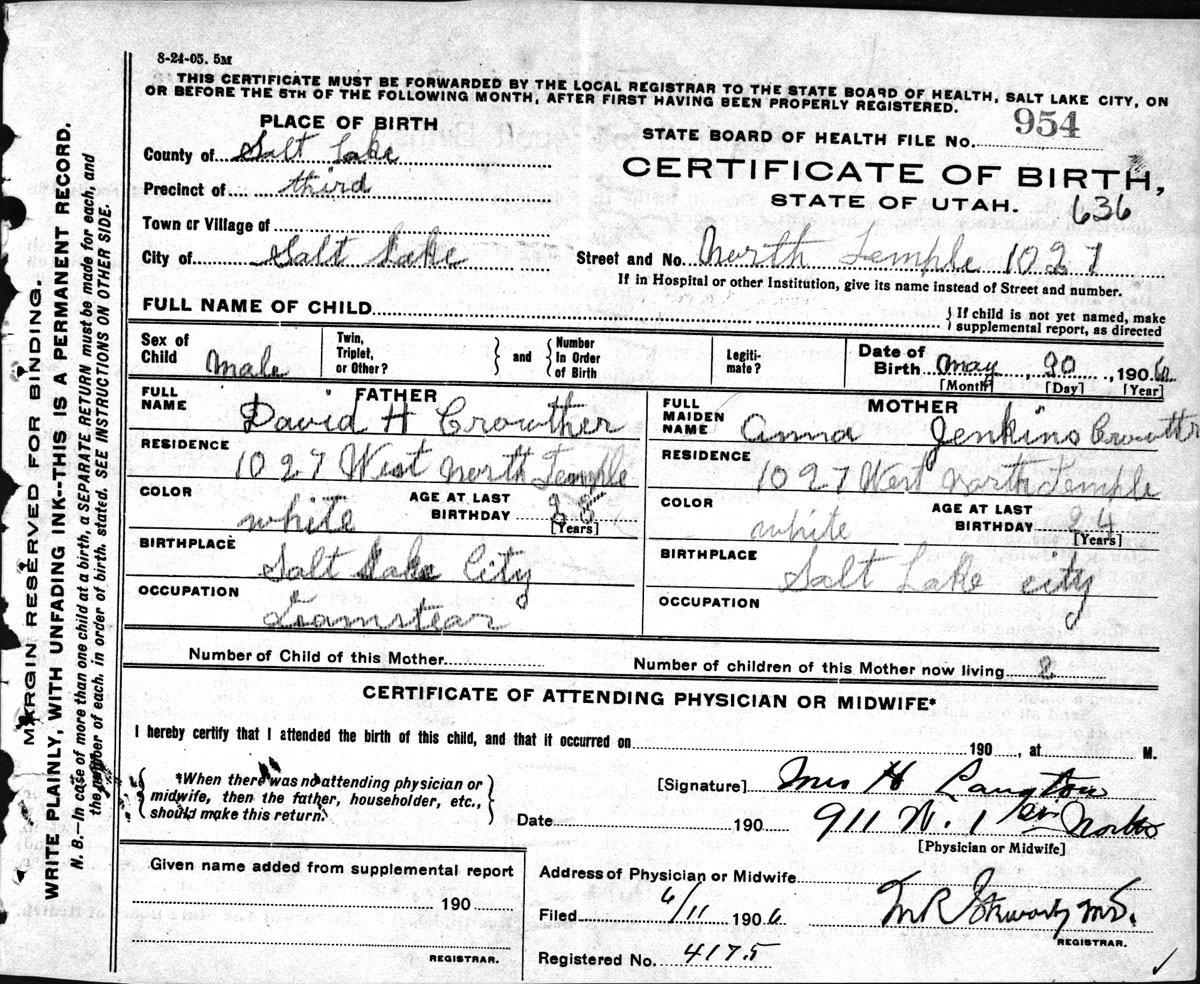 8-24-05. 5M
THIS CERTIFICATE MUST BE FORWARDED BY THE LOCAL REGISTRAR TO THE STATE BOARD OF HEALTH, SALT LAKE CITY, ON
OR BEFORE THE 5TH OF THE FOLLOWING MONTH, AFTER FIRST HAVING BEEN PROPERLY REGISTERED.
PLACE OF BIRTH
STATE BOARD OF HEALTH FILE No. 954
County of Salt Lake
CERTIFICATE OF BIRTH,
Precinct of third
STATE OF UTAH. 636
Town or Village of
City of Salt Lake
Street and No. North Temple 1027
If in Hospital or other Institution, give its name instead of Street and number.
FULL NAME OF CHILD
} If child is not yet named, make
supplemental report, as directed
Sex of Child Male
Twin, Triplet, or Other?
} and {
Number In Order of Birth
Legiti- mate?
Date of Birth May, 20, 1906
[Month] [Day] [Year]
FATHER
FULL NAME David H Crowther
RESIDENCE
1027 West North Temple
COLOR white
AGE AT LAST BIRTHDAY 28
[Years]
BIRTHPLACE
Salt Lake City
OCCUPATION
Teamstear
MOTHER
FULL MAIDEN NAME Anna Jenkins Crowther
RESIDENCE
1027 West North Temple
COLOR white
AGE AT LAST BIRTHDAY 24
[Years]
BIRTHPLACE
Salt Lake City
OCCUPATION
Number of Child of this Mother
Number of children of this Mother now living 2
CERTIFICATE OF ATTENDING PHYSICIAN OR MIDWIFE*
I hereby certify that I attended the birth of this child, and that it occurred on 190, at M.
{ *When there was no attending physician or
midwife, then the father, householder, etc.,
should make this return. }
[Signature] Mrs H Langton
Date 190
911 W. 1 North
[Physician or Midwife]
Given name added from supplemental report
190
REGISTRAR.
Address of Physician or Midwife
Filed 6/11 1906
M.D.
REGISTRAR.
Registered No. 4175
MARGIN RESERVED FOR BINDING.
WRITE PLAINLY, WITH UNFADING INK--THIS IS A PERMANENT RECORD.
N. B.—In case of more than one child at a birth, a SEPARATE RETURN must be made for each, and
the number of each, in order of birth, stated. SEE INSTRUCTIONS ON OTHER SIDE.